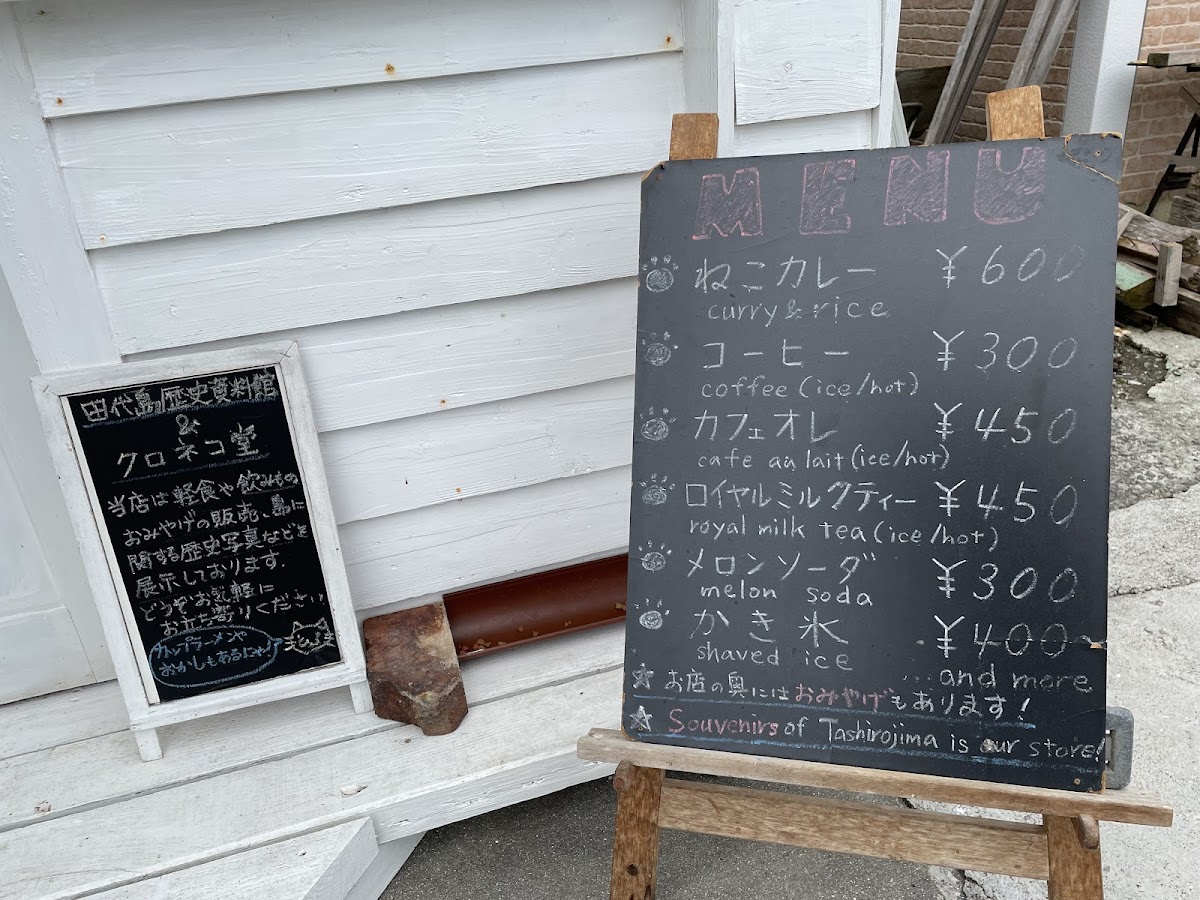 田代島歴史資料館
&
クロネコ堂
当店は軽食や飲みもの
おみやげの販売、島に
関する歴史写真などを
展示しております。
どうぞお気軽に
お立ち寄りください
カップラーメンや
おかしもあるにゃ
MENU
ねこカレー ¥600
curry & rice
コーヒー ¥300
coffee (ice/hot)
カフェオレ ¥450
cafe au lait (ice/hot)
ロイヤルミルクティー ¥450
royal milk tea (ice/hot)
メロンソーダ ¥300
melon soda
かき氷 ¥400~
shaved ice
...and more
☆お店の奥にはおみやげもあります!
☆Souvenirs of Tashirojima is our store!